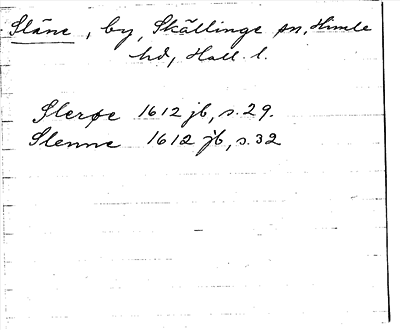 Släne, by, Skällinge sn, Himle
hd, Hall. l.
Slerøe 1612 jb, s. 29.
Slenne 1612 jb, s. 32